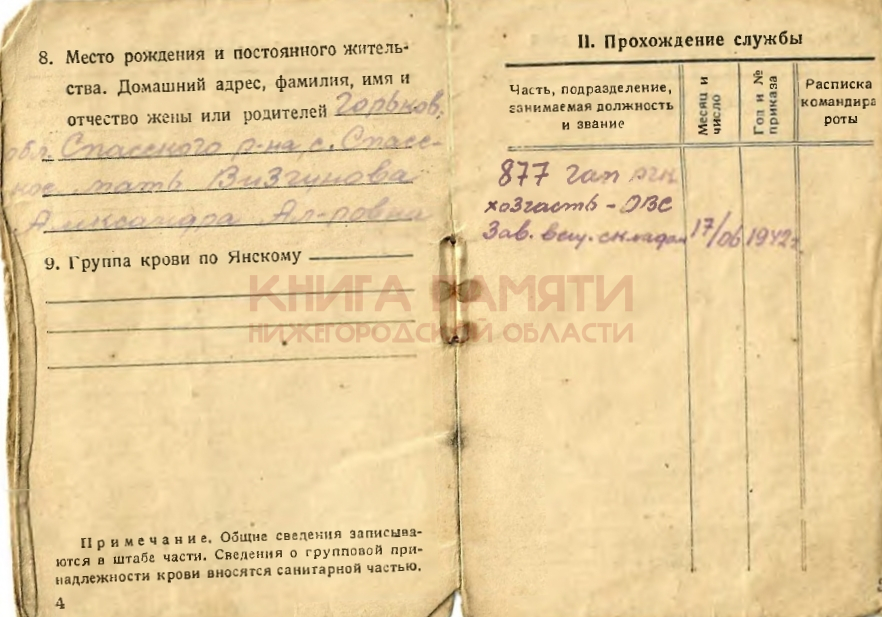 8. Место рождения и постоянного житель-
ства. Домашний адрес, фамилия, имя и
отчество жены или родителей Горьков.
обл. Спасского р-на, с. Спасс-
кое мать Визгунова
Александра Ал-ровна
9. Группа крови по Янскому
Примечание. Общие сведения записыва-
ются в штабе части. Сведения о групповой при-
надлежности крови вносятся санитарной частью.
4
II. Прохождение службы
Часть, подразделение,
занимаемая должность
и звание
Месяц и
число
Год и №
приказа
Расписка
командира
роты
877 гап ргк
хозчасть - ОВС
Зав. вещ. складом 17/06 1942 г
КНИГА ПАМЯТИ
НИЖЕГОРОДСКОЙ ОБЛАСТИ